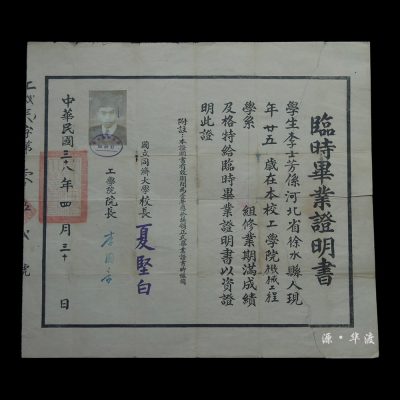 臨時畢業證明書
學生李士芳係河北省徐水縣人現
年廿五歲在本校工學院機械工程
學系 組修業期滿成績
及格特給臨時畢業證明書以資證
明此證
附註：本證明書有效期間為
國立同濟大學校長 夏堅白
工學院院長 李國豪
中華民國三八年四月三十日
源·华渡